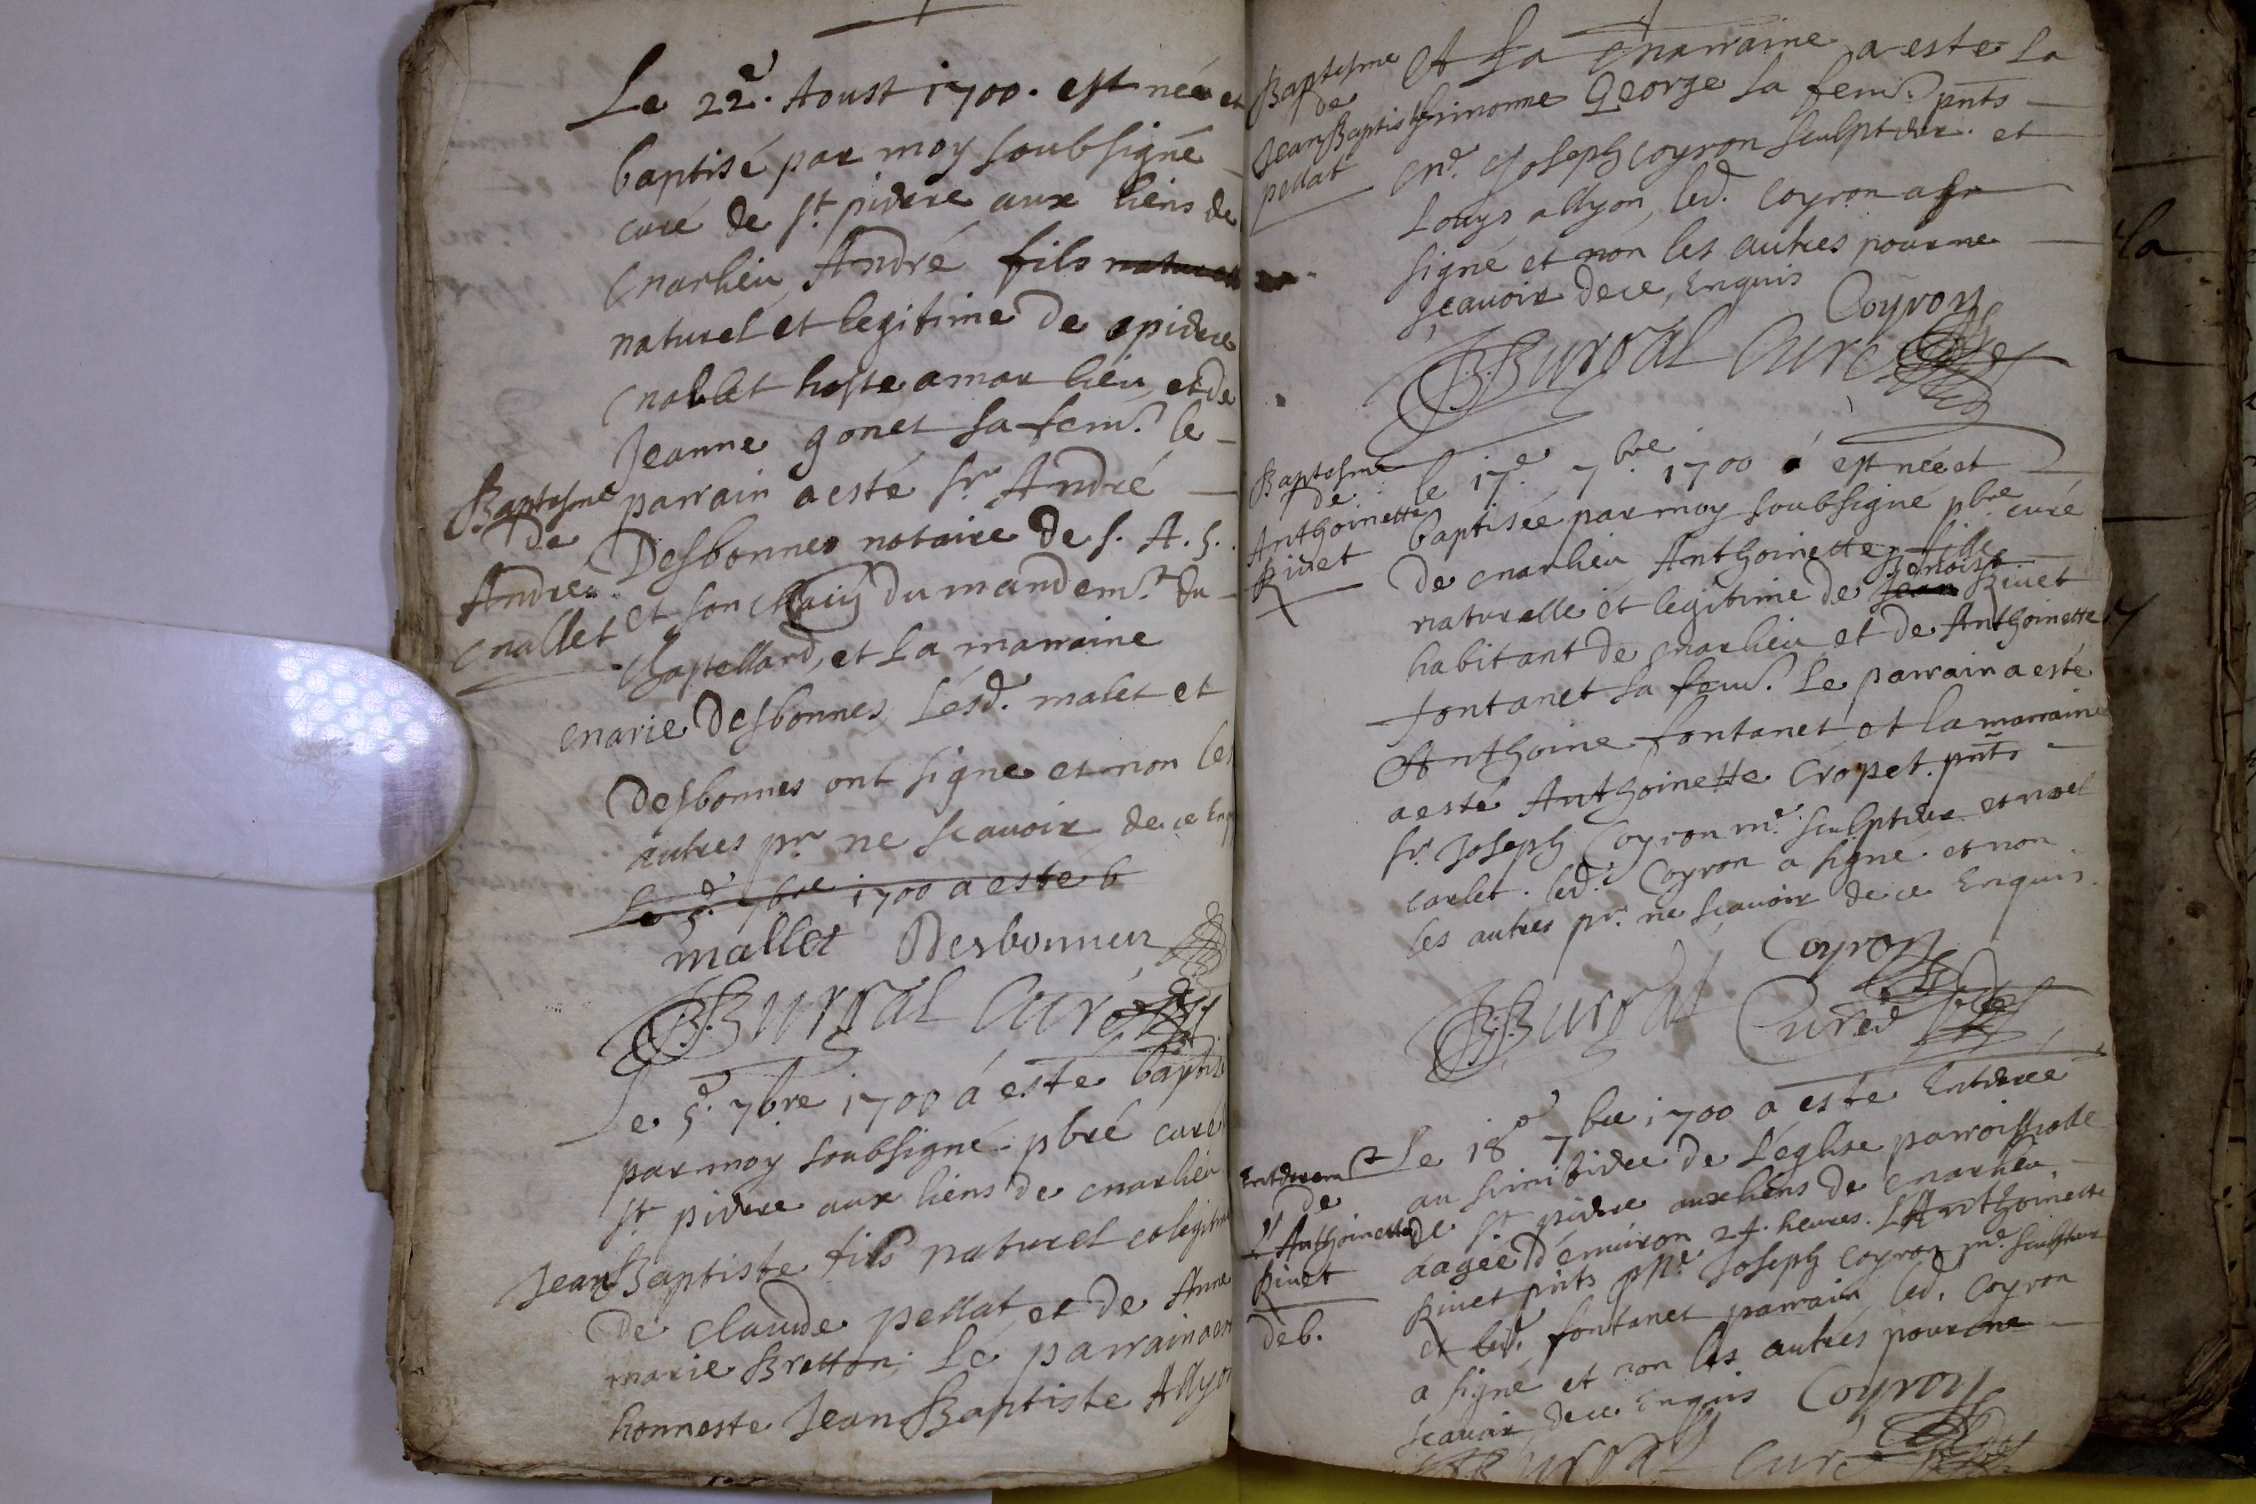 Le 22e. Aoust 1700. est née et
baptisé par moy soubsigné
curé de st. pierre aux liens de
marlieu, André fils naturel
naturel et legitime de pierre
mallet hoste a marlieu, et de
Jeanne gonet sa fem.e le
Baptesme
de
André
mallet
parrain a esté sr. André
Desbonnes notaire de s. A. s.
et son du mandem.t du
Chastellard, et la marraine
marie Desbonnes, Lesd. malet et
Desbonnes ont signe et non les
autres pr ne scauoir de ce Enq
Le 5e. 7bre 1700 a este b
mallet Desbonnes
Burdal Curé
Le 5e. 7bre 1700 á esté baptisé
par moy soubsigné pbré curé
st. pierre aux liens de marlieu
Jean Baptiste fils naturel et legitime
De claude pellat et de Anne
marie Bretton, Le parrain a est
honneste Jean Baptiste Allyon
Baptesme
de
Jean Baptiste
pellat
et La marraine a este La
Simonne George sa fem.e pnts
me. Joseph Coyron sculpteur. et
Louys allyon, led. Coyron a
signé et non les autres pour ne
sçauoir de ce, Enquis
Coyron
Burdal Curé
Baptesme
de
Anthoinette
Riuet
le 17e. 7bre 1700 á est née et
baptisée par moy soubsigné pbre curé
de marlieu Anthoinette fille
naturelle et legitime de Jean Benoist Riuet
habitant de marlieu et de Anthoinette
fontanet sa fem.e Le parrain a esté
Anthoine fontanet et la marraine
a esté Anthoinette Cropet. pnts
sr. Joseph Coyron me. sculpteur et noel
carlet. led. Coyron a signé. et non
les autres pr. ne sçauoir de ce Enquis.
Coyron
Burdal Curé
Enterrem.t
de
l'Anthoinette
Riuet
deb.
Le 18e 7bre 1700 a esté Enterrée
au simitiere de L'église parroissialle
de st pierre aux liens de marlieu
áagée d'enuiron 24. heures. l'Anthoinette
Riuet pnts Joseph Coyron me. sculpteur
et led. fontanet parrain, led. Coyron
a signé et non les autres pour ne
scauoir, de ce Enquis Coyron
Burdal Curé